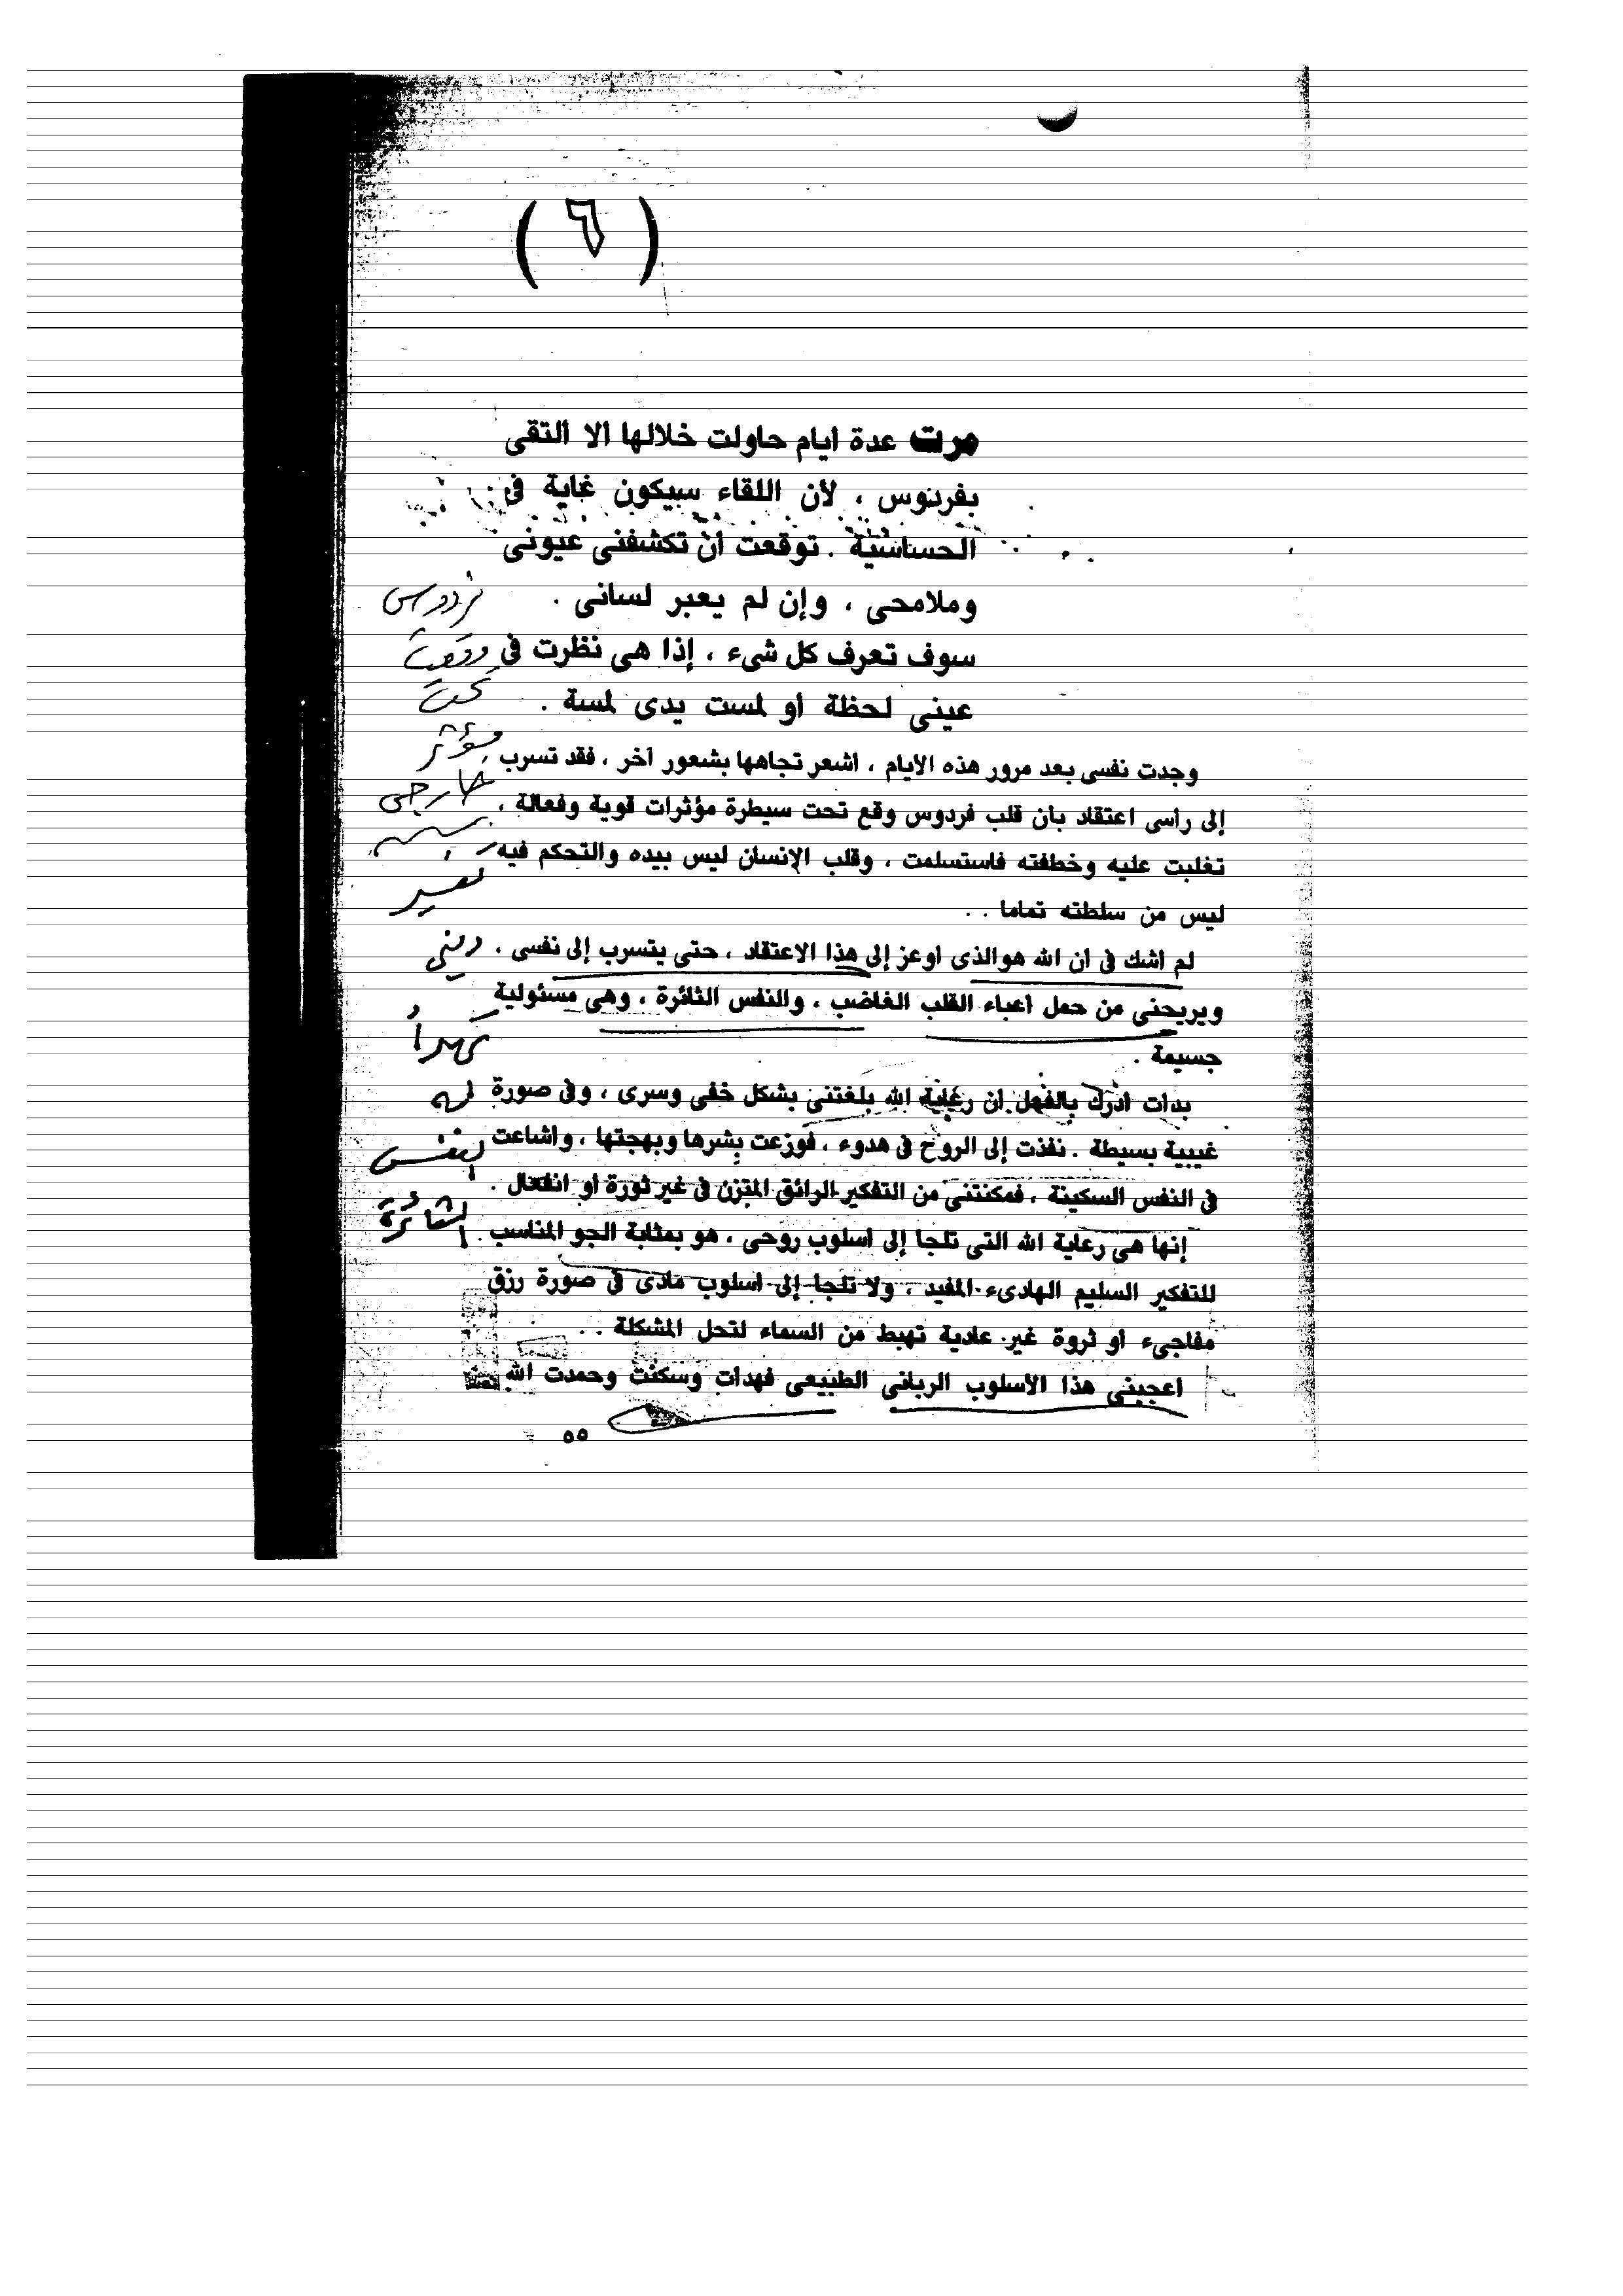 (٦)
مرت عدة أيام حاولت خلالها ألا ألتقى
بفردوس ، لأن اللقاء سيكون غاية فى
الحساسية . توقعت أن تكشفنى عيونى
وملامحى ، وإن لم يعبر لسانى .
فردوس
سوف تعرف كل شىء ، إذا هى نظرت فى
وقعت
عينى لحظة أو لمست يدى لمسة .
تحت
وجدت نفسى بعد مرور هذه الأيام ، أشعر تجاهها بشعور آخر ، فقد تسرب
مؤثر
إلى رأسى اعتقاد بأن قلب فردوس وقع تحت سيطرة مؤثرات قوية وفعالة ،
خارجى
تغلبت عليه وخطفته فاستسلمت ، وقلب الإنسان ليس بيده والتحكم فيه
ليس من سلطته تماما . .
لم أشك فى أن الله هو الذى أوعز إلى هذا الاعتقاد ، حتى يتسرب إلى نفسى ،
ويريحنى من حمل أعباء القلب الغاضب ، والنفس الثائرة ، وهى مسئولية
جسيمة .
بدأت أدرك بالفعل أن رعاية الله بلغتنى بشكل خفى وسرى ، وفى صورة
غيبية بسيطة . نفذت إلى الروح فى هدوء ، فوزعت بشرها وبهجتها ، وأشاعت
فى النفس السكينة ، فمكنتنى من التفكير الرائق المتزن فى غير ثورة أو انفعال .
الثائرة
إنها هى رعاية الله التى تلجأ إلى أسلوب روحى ، هو بمثابة الجو المناسب
للتفكير السليم الهادىء المفيد ، ولا تلجأ إلى أسلوب مادى فى صورة رزق
مفاجىء أو ثروة غير عادية تهبط من السماء لتحل المشكلة . .
أعجبنى هذا الأسلوب الربانى الطبيعى فهدأت وسكنت وحمدت الله
٥٥